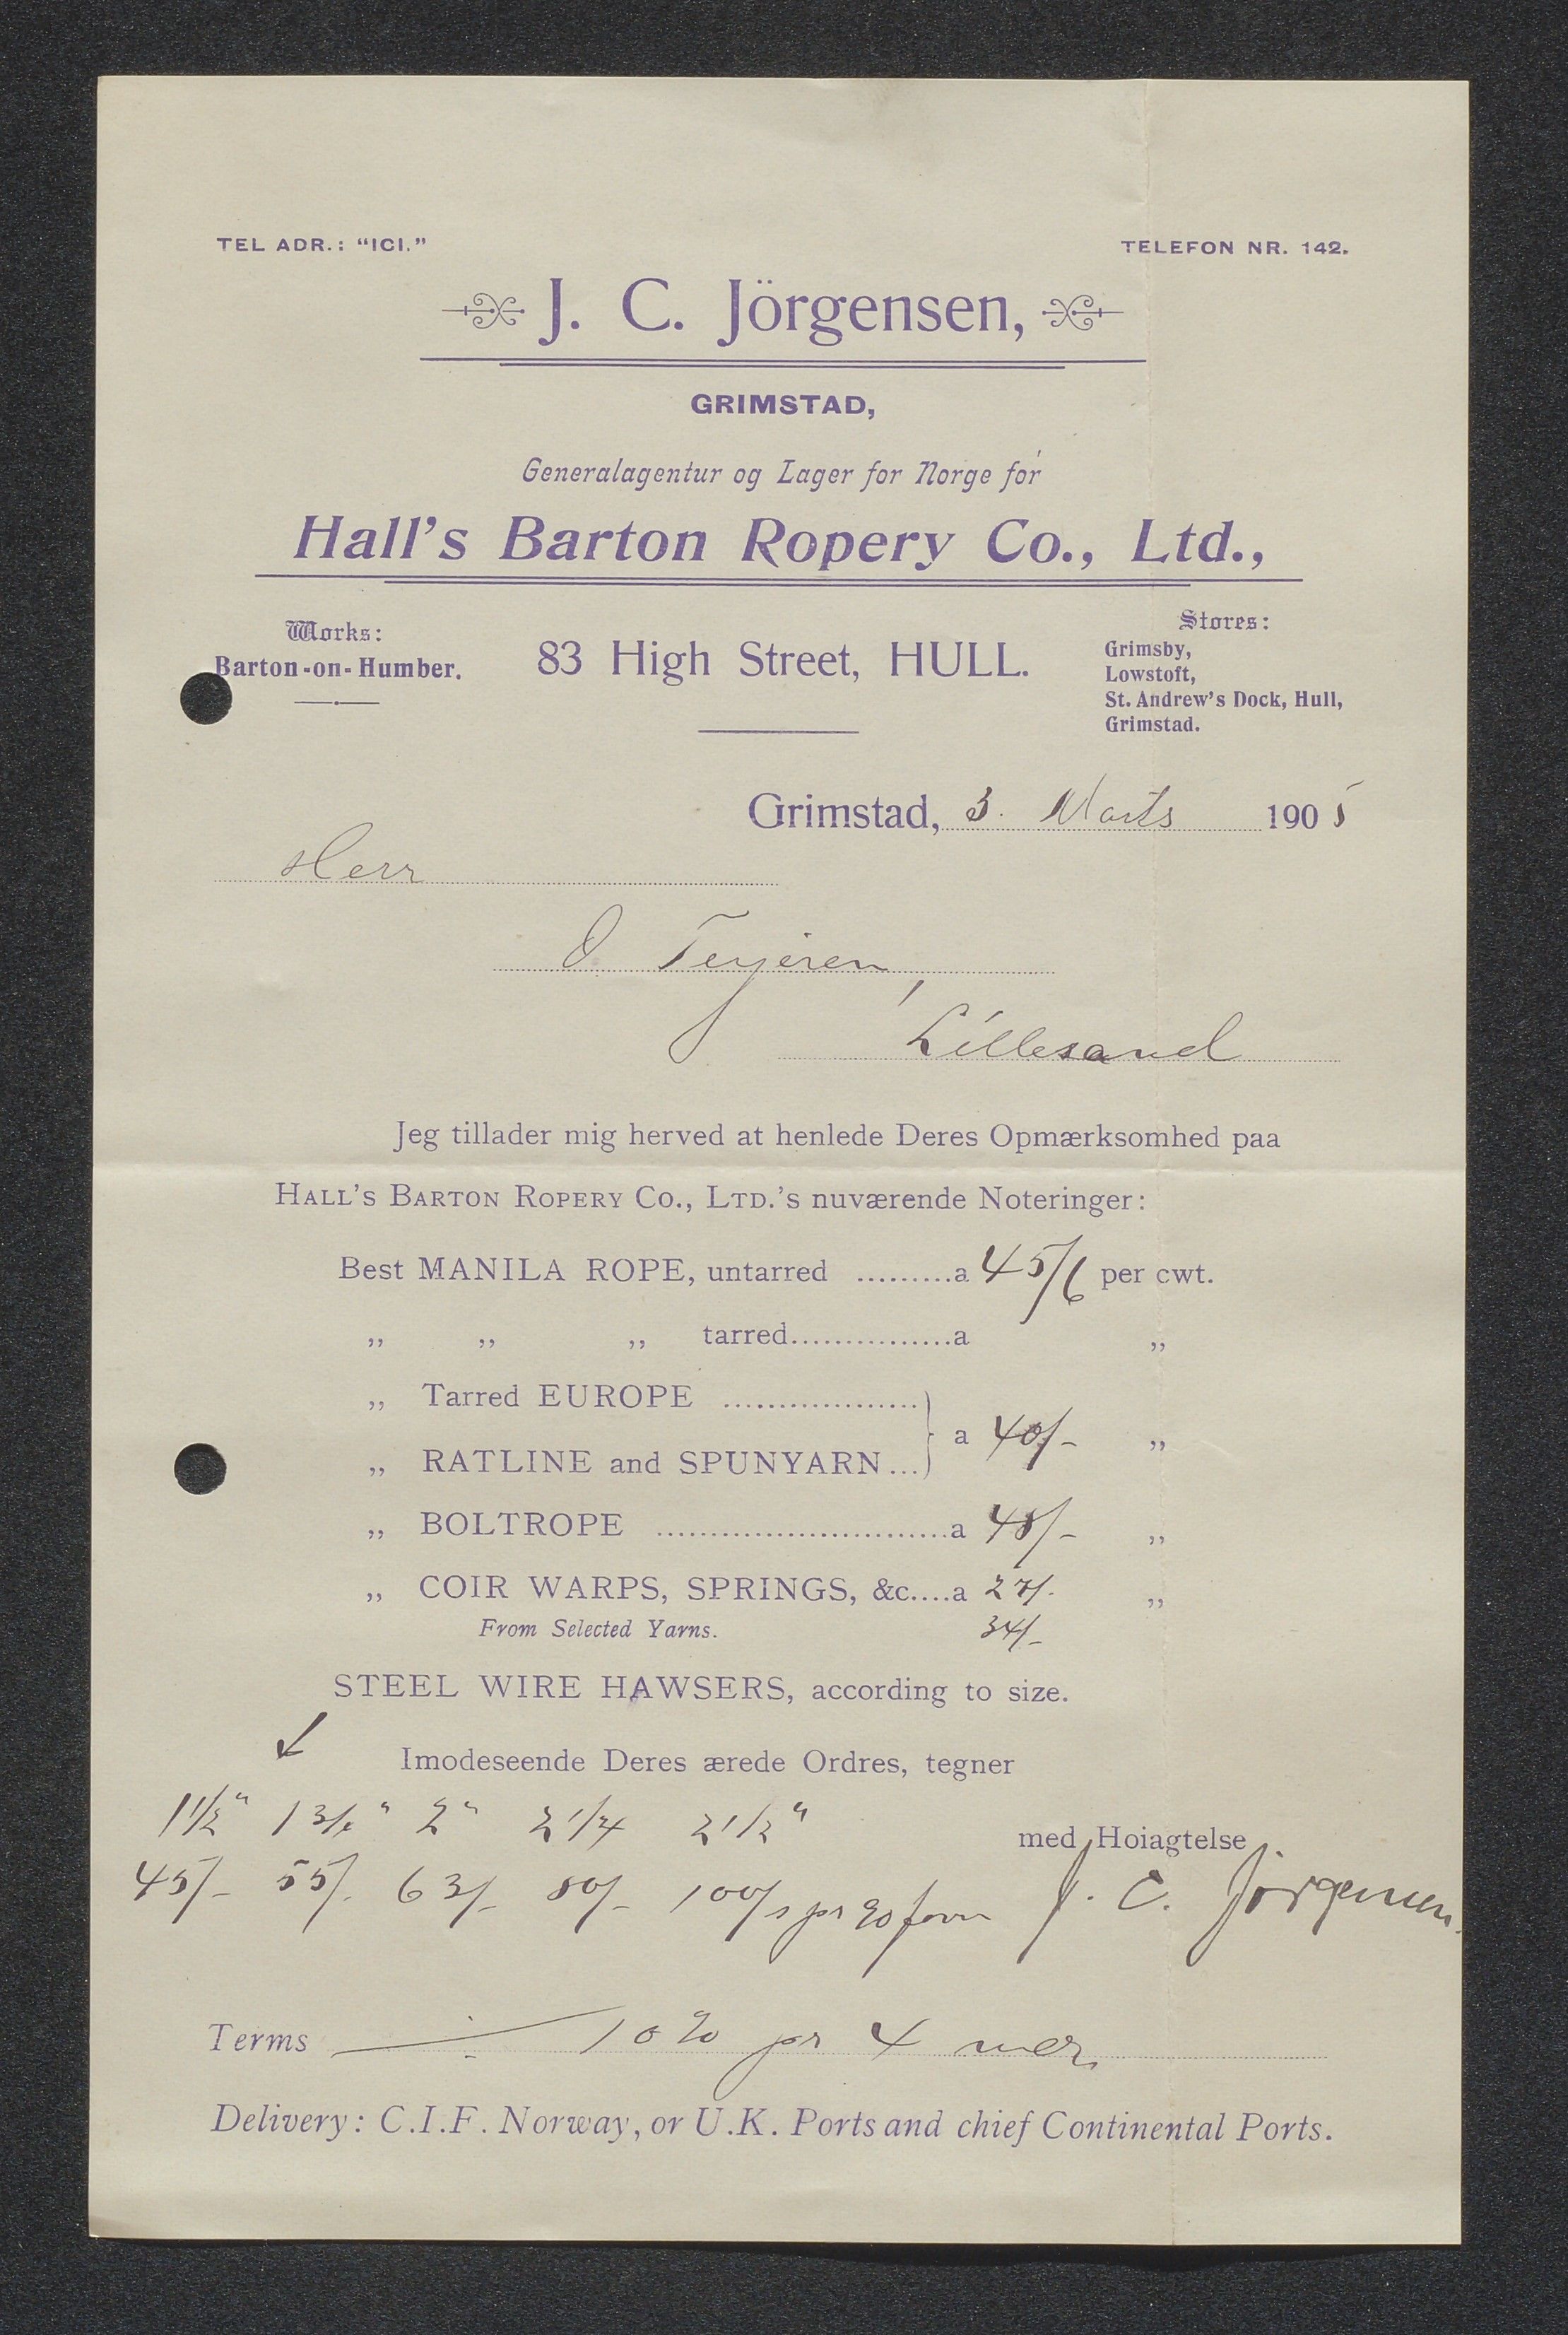 TEL ADR.: "ICI."
TELEFON NR. 142.
J. C. Jörgensen,
GRIMSTAD,
Generalagentur og Lager for Norge for
Hall's Barton Ropery Co., Ltd.,
Works:
Barton-on-Humber.
83 High Street, HULL.
Stores:
Grimsby,
Lowstoft,
St. Andrew's Dock, Hull,
Grimstad.
Grimstad, 3. Marts 1905
Herr
O. Terjesen,
Lillesand
Jeg tillader mig herved at henlede Deres Opmærksomhed paa
HALL'S BARTON ROPERY CO., LTD.'s nuværende Noteringer:
Best MANILA ROPE, untarred .........a 45/6 per cwt.
„ „ „ tarred................a „
„ Tarred EUROPE ...................
„ RATLINE and SPUNYARN... } a 40/- „
„ BOLTROPE ............................a 48/- „
„ COIR WARPS, SPRINGS, &c....a 27/- „
From Selected Yarns. 34/-
STEEL WIRE HAWSERS, according to size.
Imodeseende Deres ærede Ordres, tegner
1 1/2" 1 3/4" 2" 2 1/4 2 1/2"
med Hoiagtelse
45/- 55/- 63/- 80/- 100/- pr 90 favn J. C. Jörgensen.
Terms 10% pr 4 mdr.
Delivery: C.I.F. Norway, or U.K. Ports and chief Continental Ports.